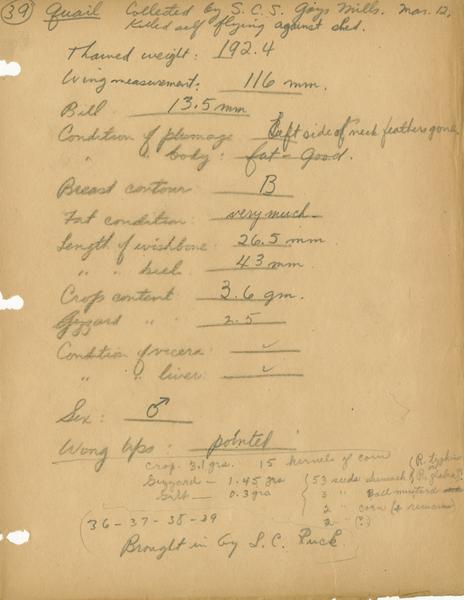 (39) Quail Collected by S.C.S. Gays Mills. Mar. 12,
Killed self flying against shed.
Thawed weight: 192.4
Wing measurement: 116 mm.
Bill 13.5 mm
Condition of plumage Left side of neck feathers gone
" " body: fat - Good.
Breast contour B
Fat condition: very much
Length of wishbone: 26.5 mm
" " keel 43 mm
Crop content 3.6 gm.
Gizzard " " 2.5
Condition of vicera: ✓
" " liver: ✓
Sex: ♂
Wing tips: pointed
Crop 3.1 grs. 15 kernels of corn (R. typhina
Gizzard — 1.45 grs (53 seeds shumach (or R. glabra)?
Grit — 0.3 grs 3 " Ball mustard
2 " corn (& remains)
2 " (?)
(36-37-38-39
Brought in by L.C.